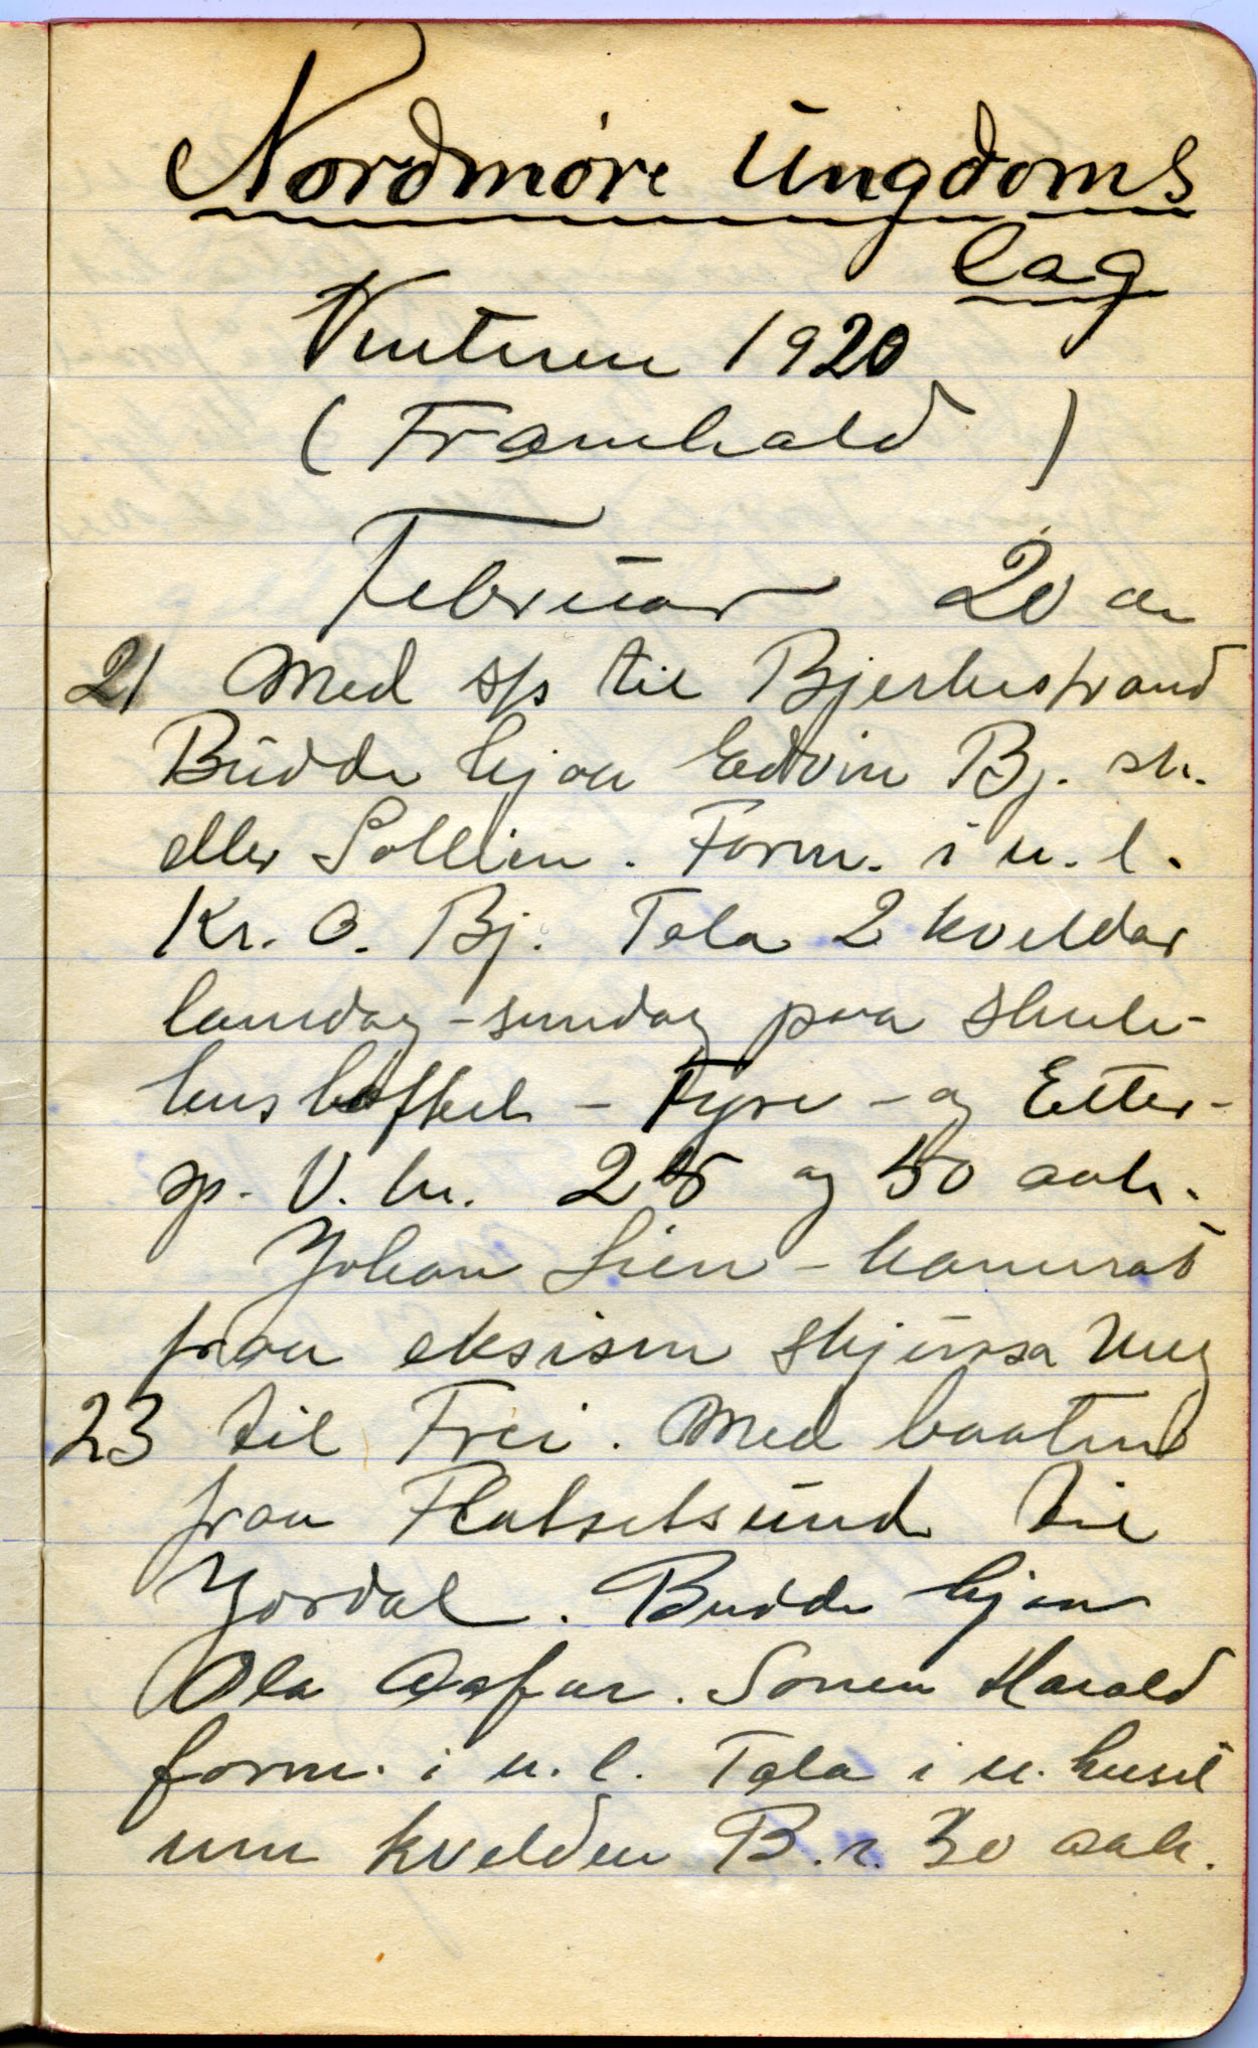 Nordmøre Ungdoms
lag
Vinteren 1920
(Framhald)
Februar 20 aa
21 Med s/s til Bjerkestrand
Budde hjaa Edvin Bj. st.
eller Sollien. Form. i u. l.
Kr. O. Bj. Tala 2 kveldar
laurdag - sundag paa skule-
huslofted - Fyre - og Etter-
sp. V. kr. 25 og 50 aah.
Johan Lien - kamerat
fraa eksisen skjussa meg
23 til Frei. Med baatend
fraa Flatsetsund til
Jordal. Budde hjaa
Ola Aasfar. Sonen Harald
form. i u. l. Tala i u. huset
um kvelden B. r. 30 aah.